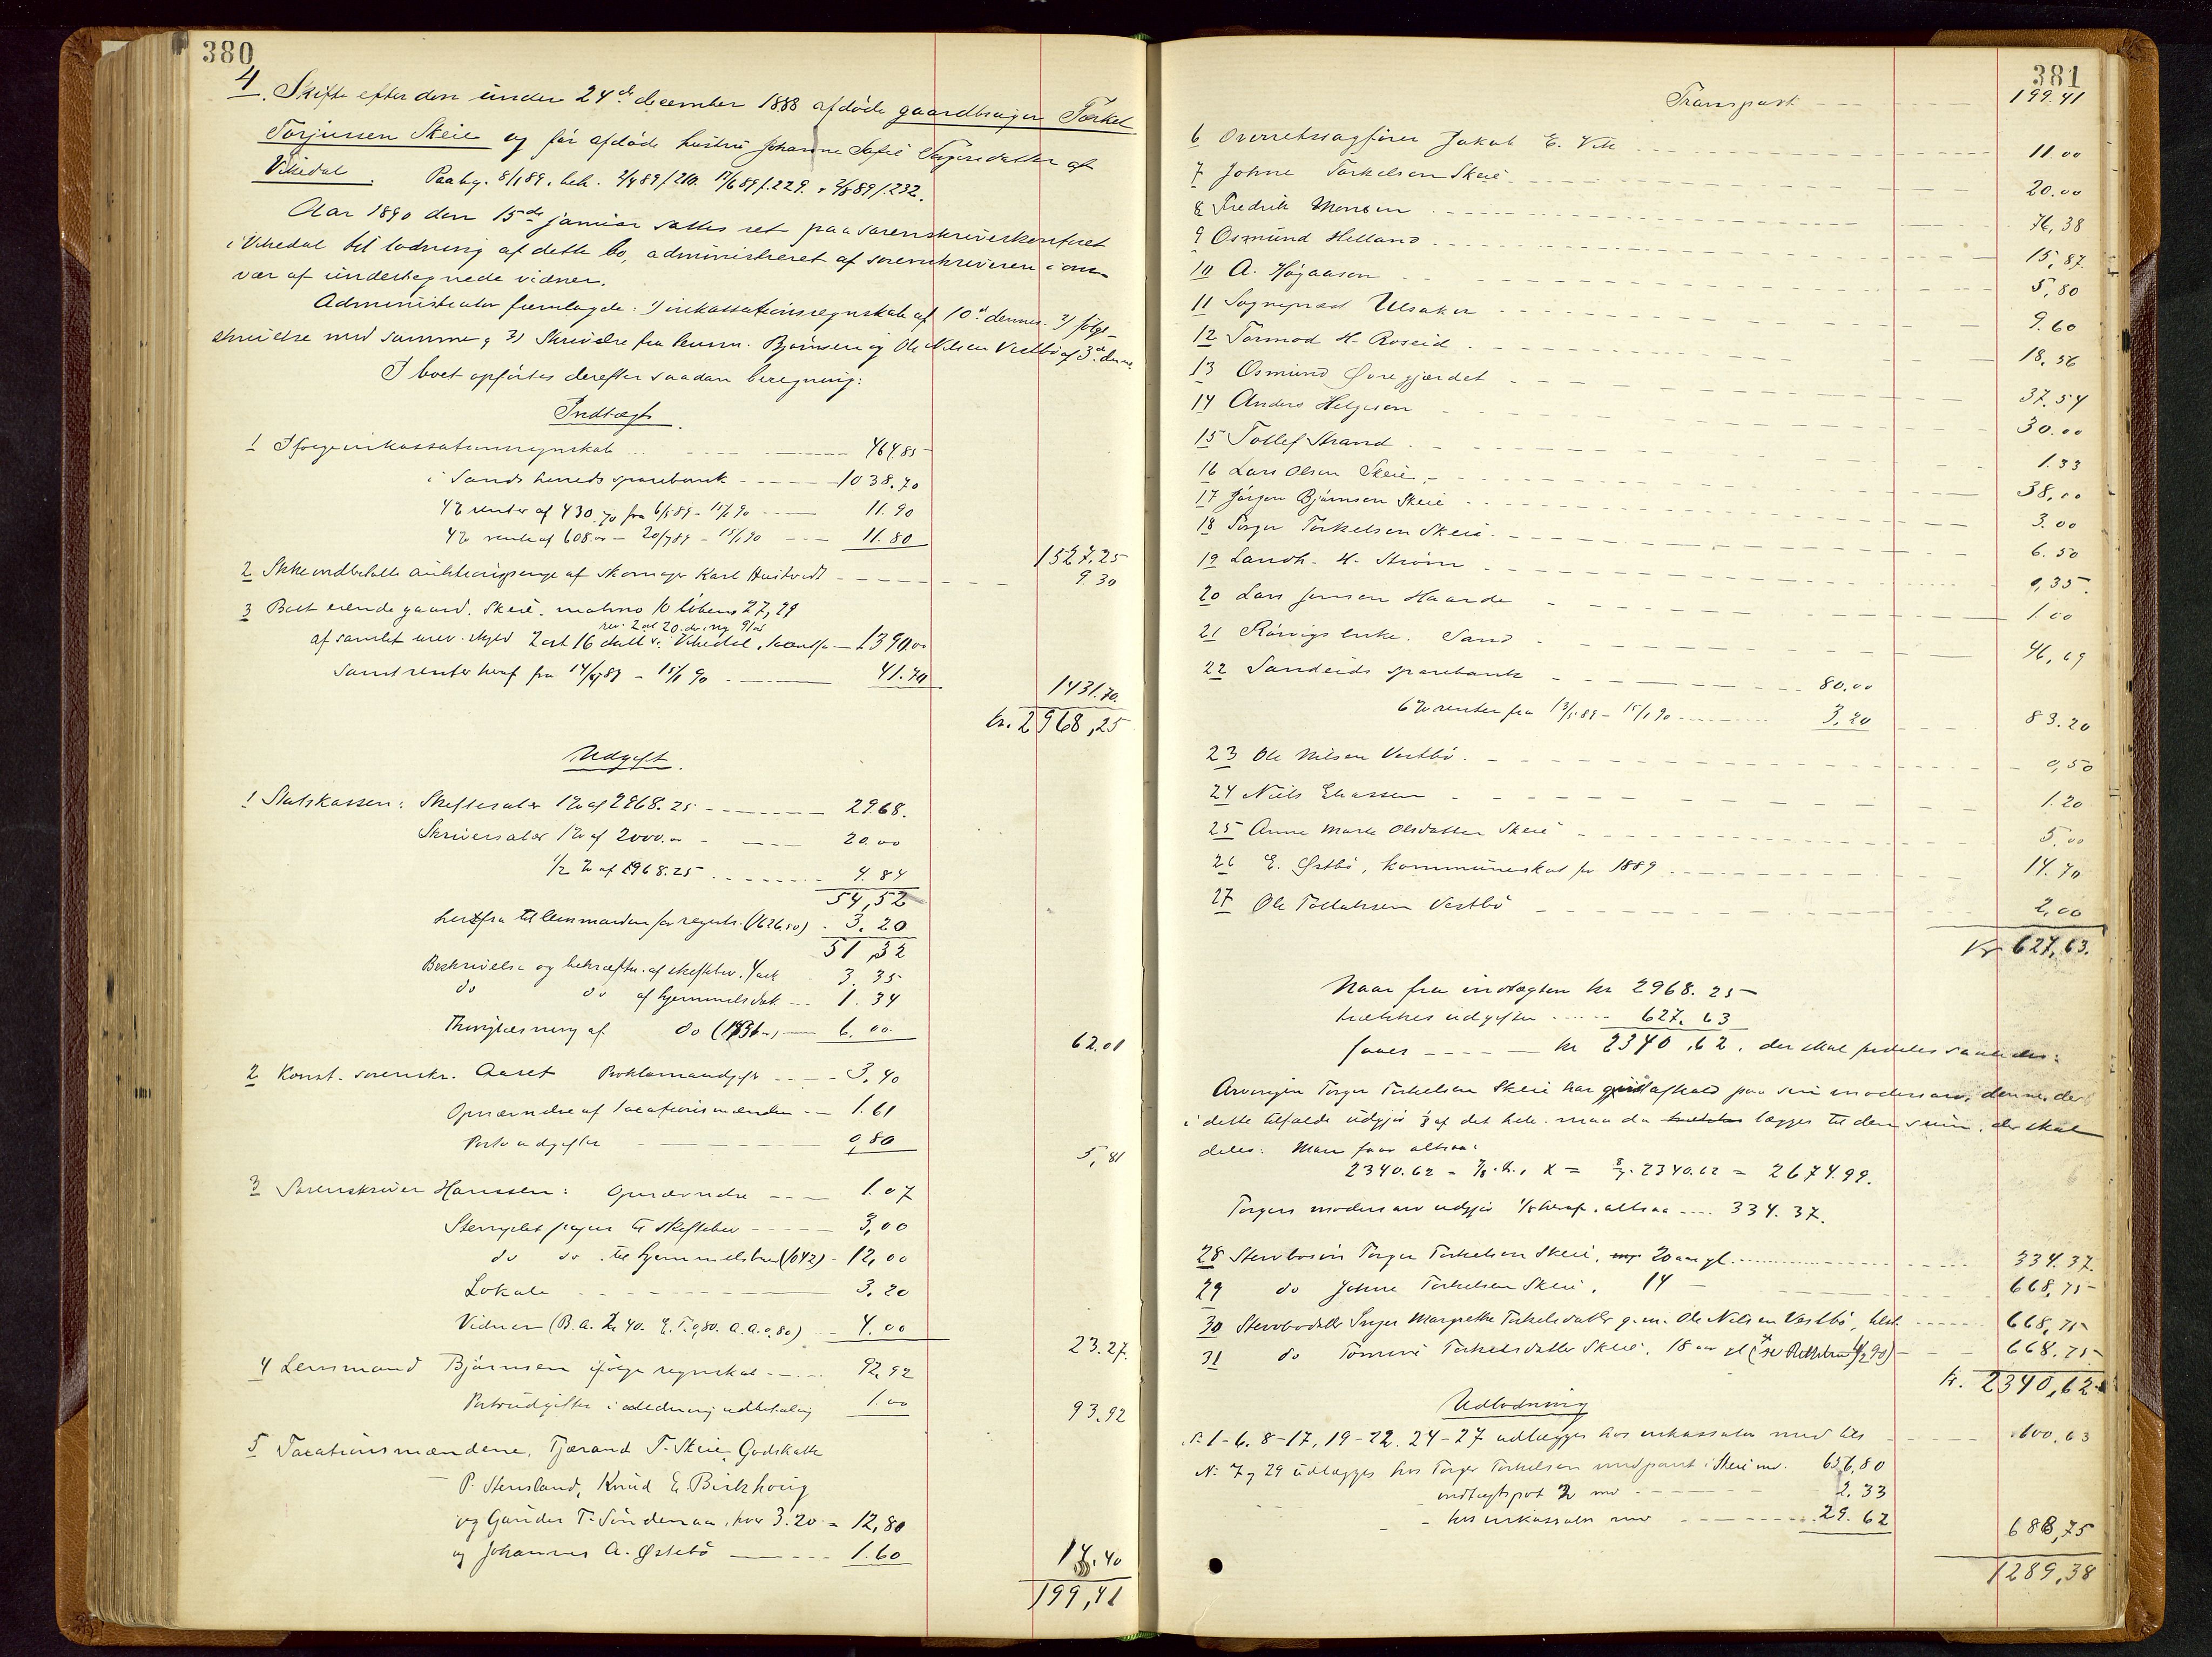 380
4. Skifte efter den under 24de december 1888 afdøde gaardbruger Torkel
Torjussen Skeie og før afdøde hustru Johanne Sofie Torgersdatter af
Vikedal. Paabg. 8/1 89, beh. 2/4 89 f. 210. 17/6 89 f. 229. 2/8 89 f. 232.
Aar 1890 den 15de januar sattes ret paa sorenskriverkontoret
i Vikedal til lodning af dette bo, administreret af sorenskriveren i over-
vær af undertegnede vidner.
Administrator fremlagde: 1) inkassationsregnskab af 10de dennes. 2) følge-
skrivelse med samme, 3) Skrivelse fra lensm. Bjørnsen og Ole Nilsen Vestbø af 3de dennes.
I boet opførtes derefter saadan beregning:
Indtægt.
1 Ifølge inkassationsregnskab 464.85
i Sands herreds sparebank 1038.70
4% renter af 430.70 fra 6/5 89 - 15/1 90 11.90
4% rente af 608.00 - 20/7 89 - 15/1 90 11.80
1527.25
2 Ikke indbetalte auktionspenge af skomager Karl Hustvedt 9.30
3 Boet eiende gaard. Skeie. matrno 10 løbeno 27, 29
rev. 2 ort 20
af samlet urev. skyld 2 ort 16 skill i Vikedal, taxeret for 1390.00
samt renter heraf fra 14/4 89 - 15/1 90 41.70
1431.70.
kr. 2968,25
Udgift.
1 Statskassen: Skiftesalær 1% af 2968.25 29.68.
Skriversalær 1% af 2000.00 20.00
1/2 % af 1968.25 4.84
54,52
herfra til lensmanden for registr. (1626.50) 3.20
51,32
Beskrivelse og bekræftn. af skiftebrev. 4 ark 3.35
do do af hjemmelsdok 1.34
Thinglæsning af do 6.00
62.01
2 Konst. sorenskr. Aaset Proklamaudgift 3,40
Opnævnelse af taxationsmænden 1.61
Portoudgifter 0,80
5,81
3 Sorenskriver Hanssen: Opnævnelse 1.07
Stemplet papir til skiftebrev 3,00
do do til hjemmelsbrev (1042) 12,00
Lokale 3,20
Vidner (B.A. 2,40. E.T. 0,80. A.A. 0,80) 4.00
23.27.
4 Lensmand Bjørnsen ifølge regnskab 92,92
Portoudgifter i anledning udbetaling 1.00
93.92
5 Taxationsmændene, Tjærand T. Skeie, Godskalk
P. Stensland, Knud E. Birkhoug
og Gunder T. Søndenaa, hver 3.20 = 12,80
og Johannes A. Østebø 1.60
14.40
199,41
381
Transport 199.41
6 Overretssagfører Jakob E. Vik 11.00
7 Johne Torkelsen Skeie 20.00
8 Fredrik Monsen 76,38
9 Osmund Helland 15,87
10 A. Høgaasen 5,80
11 Sogneprest Ulsaker 9.60
12 Tormod H. Roseid 18.56
13 Osmund Øvregjærdet 37.54
14 Anders Helgesen 30.00
15 Tollef Strand 1.33
16 Lars Olsen Skeie 38,00
17 Jørgen Bjørnsen Skeie 3.00
18 Torger Torkelsen Skeie 6.50
19 Landh. H. Strøm 0,35
20 Lars Jonsen Haarde 1.00
21 Rørvigs enke. Sand 46,69
22 Sandeids sparebank 80.00
6% renter fra 13/5 89 - 15/1 90 3,20
83.20
23 Ole Nilsen Vestbø 0,50
24 Niels Eliassen 1.20
25 Anne Marte Olsdatter Skeie 5,00
26 E. Østbø, kommuneskat for 1889 14.70
27 Ole Tollaksen Vestbø 2,00
Kr 627,63.
Naar fra indtægten kr 2968.25
trækkes udgifter 627.63
faaes kr 2340.62, der skal fordeles saaledes:
Arvingen Torger Torkelsen Skeie har givet afkald paa sin modersarv, denne, der
i dette tilfælde udgjør 1/8 af det hele. maa da lægges til den sum, der skal
deles. Man faar altsaa:
2340.62 = 7/8. x., x = 8/7. 2340.62 = 2674.99.
Torgers modersarv udgjør 1/8 heraf. altsaa 334.37.
28 Stervbosøn Torger Torkelsen Skeie, 20 aar gl. 334.37.
29 do Johne Torkelsen Skeie, 14 668,75
30 Stervbodatter Inger Margrethe Torkelsdatter g. m. Ole Nilsen Vestbø 668,75
31 do Tomine Torkelsdatter Skeie, 18 aar gl 668.75
kr. 2340,62
Udlodning
No 1-6, 8-17, 19-22. 24-27 udlægges hos inkassator med tils 600,63
No 7 og 29 udlægges hos Torger Torkelsen med pant i Skeie med 656,80
indtægtspost 2 med 2.33
hos inkassator med 29.62
688,75
1289,38